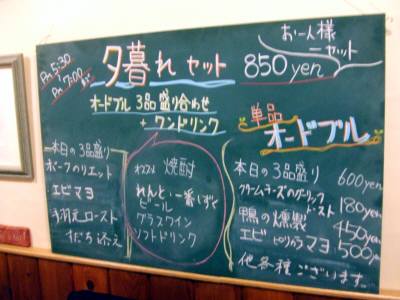 PM 5:30
PM 7:00まで
夕暮れセット
850yen
お一人様
一セット
オードブル 3品盛り合わせ
+ ワンドリンク
単品
オードブル
本日の3品盛り
ポークのリエット
エビマヨ
手羽元ロースト
すだち添え
オススメ 焼酎
れんと、一番しずく
ビール
グラスワイン
ソフトドリンク
本日の3品盛り 600yen
クリームチーズのガーリック
トースト 180yen
鴨の燻製 450yen
エビ ピリカラマヨ 500yen
他各種ございます。